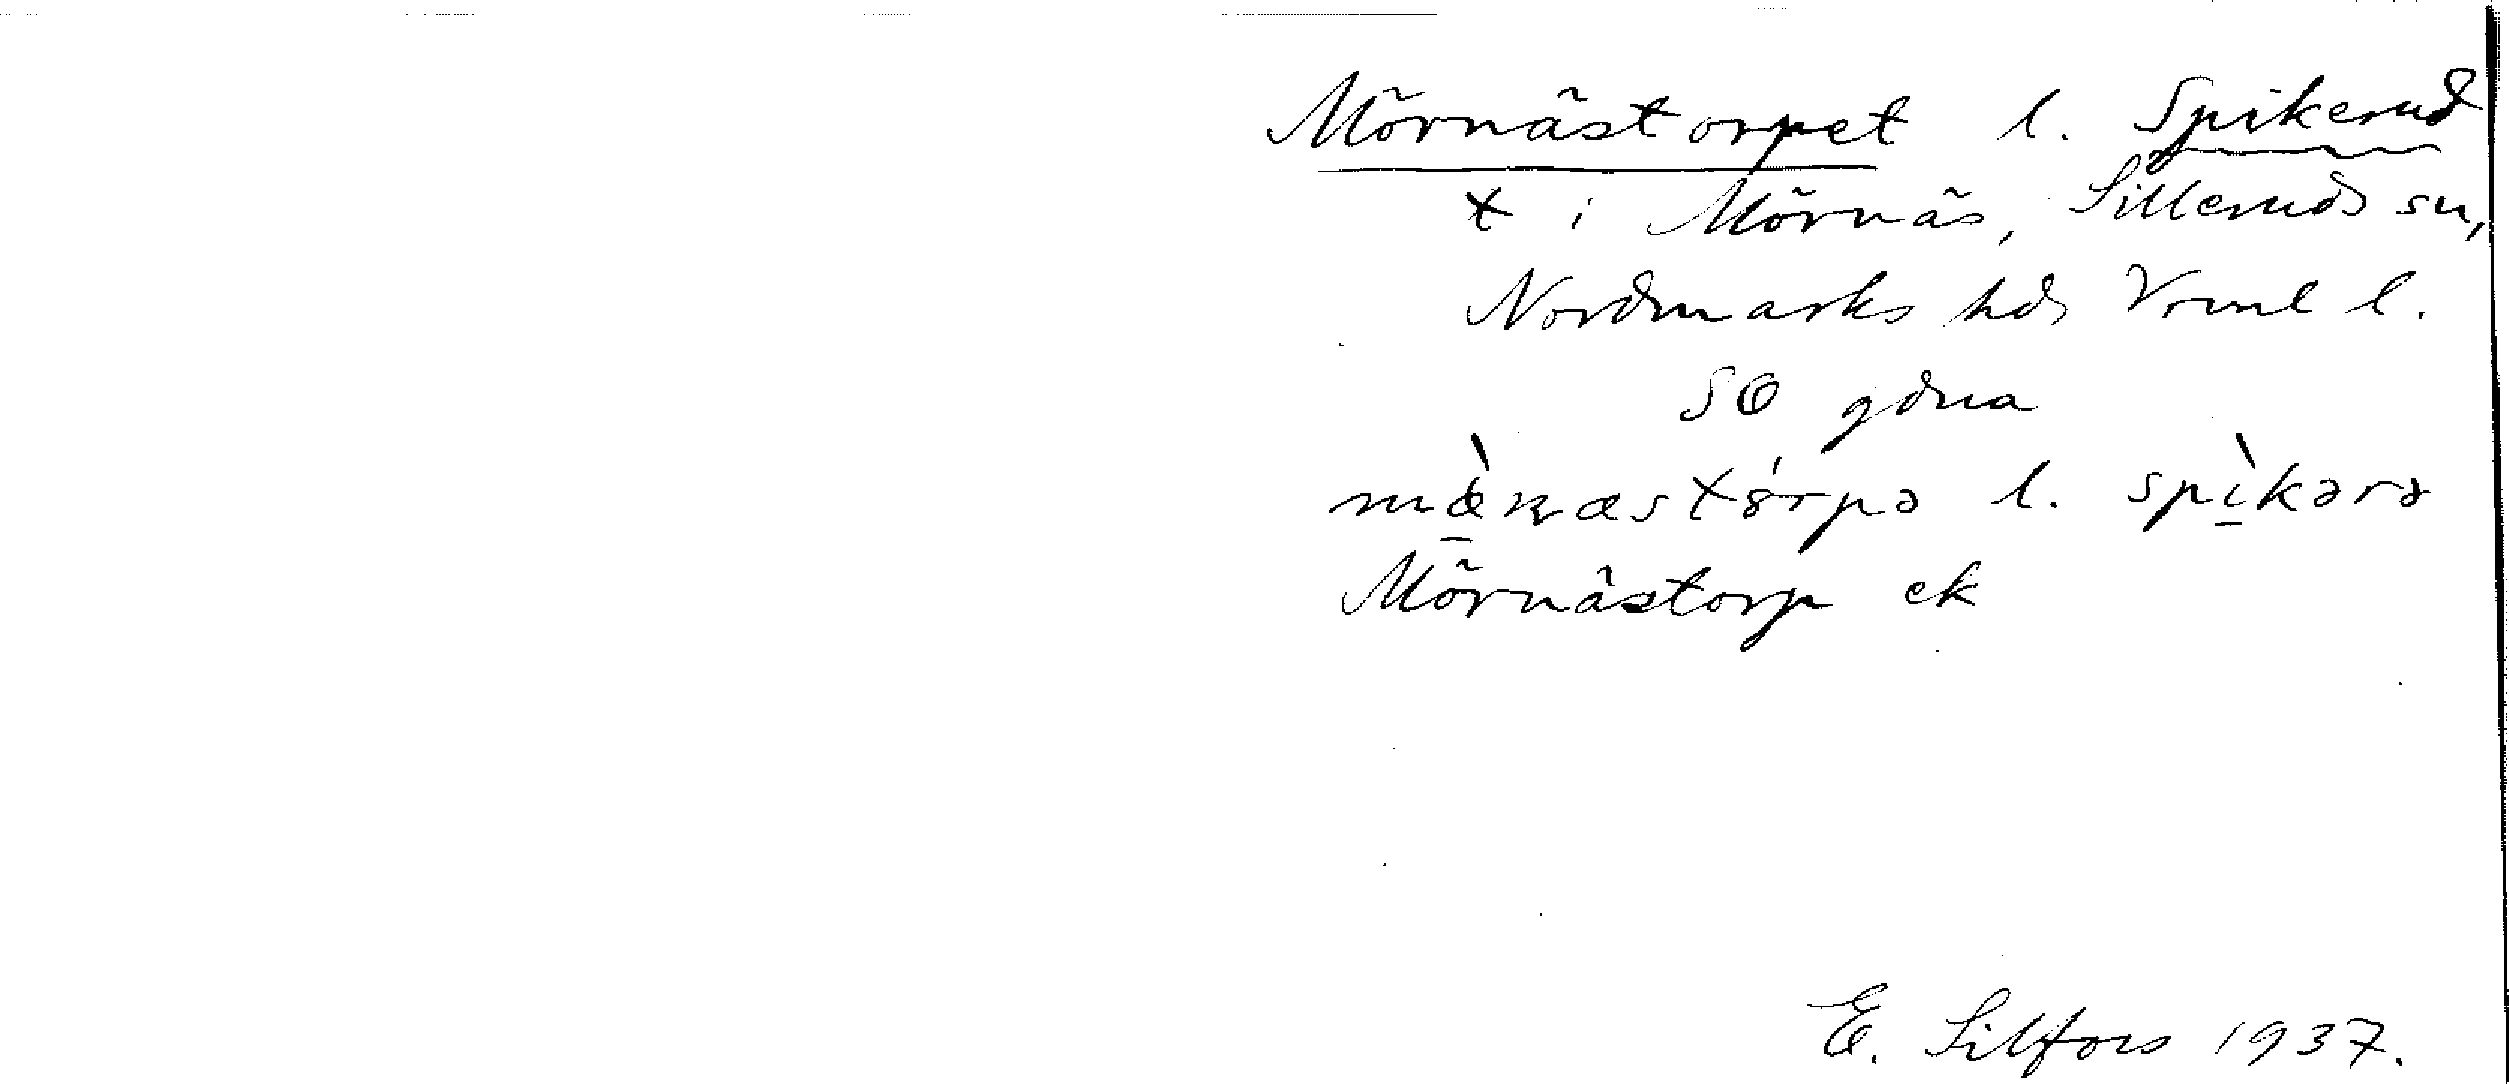 Mörnästorpet l. Spikerud
+ i Mörnäs, Silleruds sn,
Nordmarks hd, Vrml l.
SO gdna
mæ̀ɳæstórpə l. spìkərə
Mörnästorp ek
E. Silfors 1937.